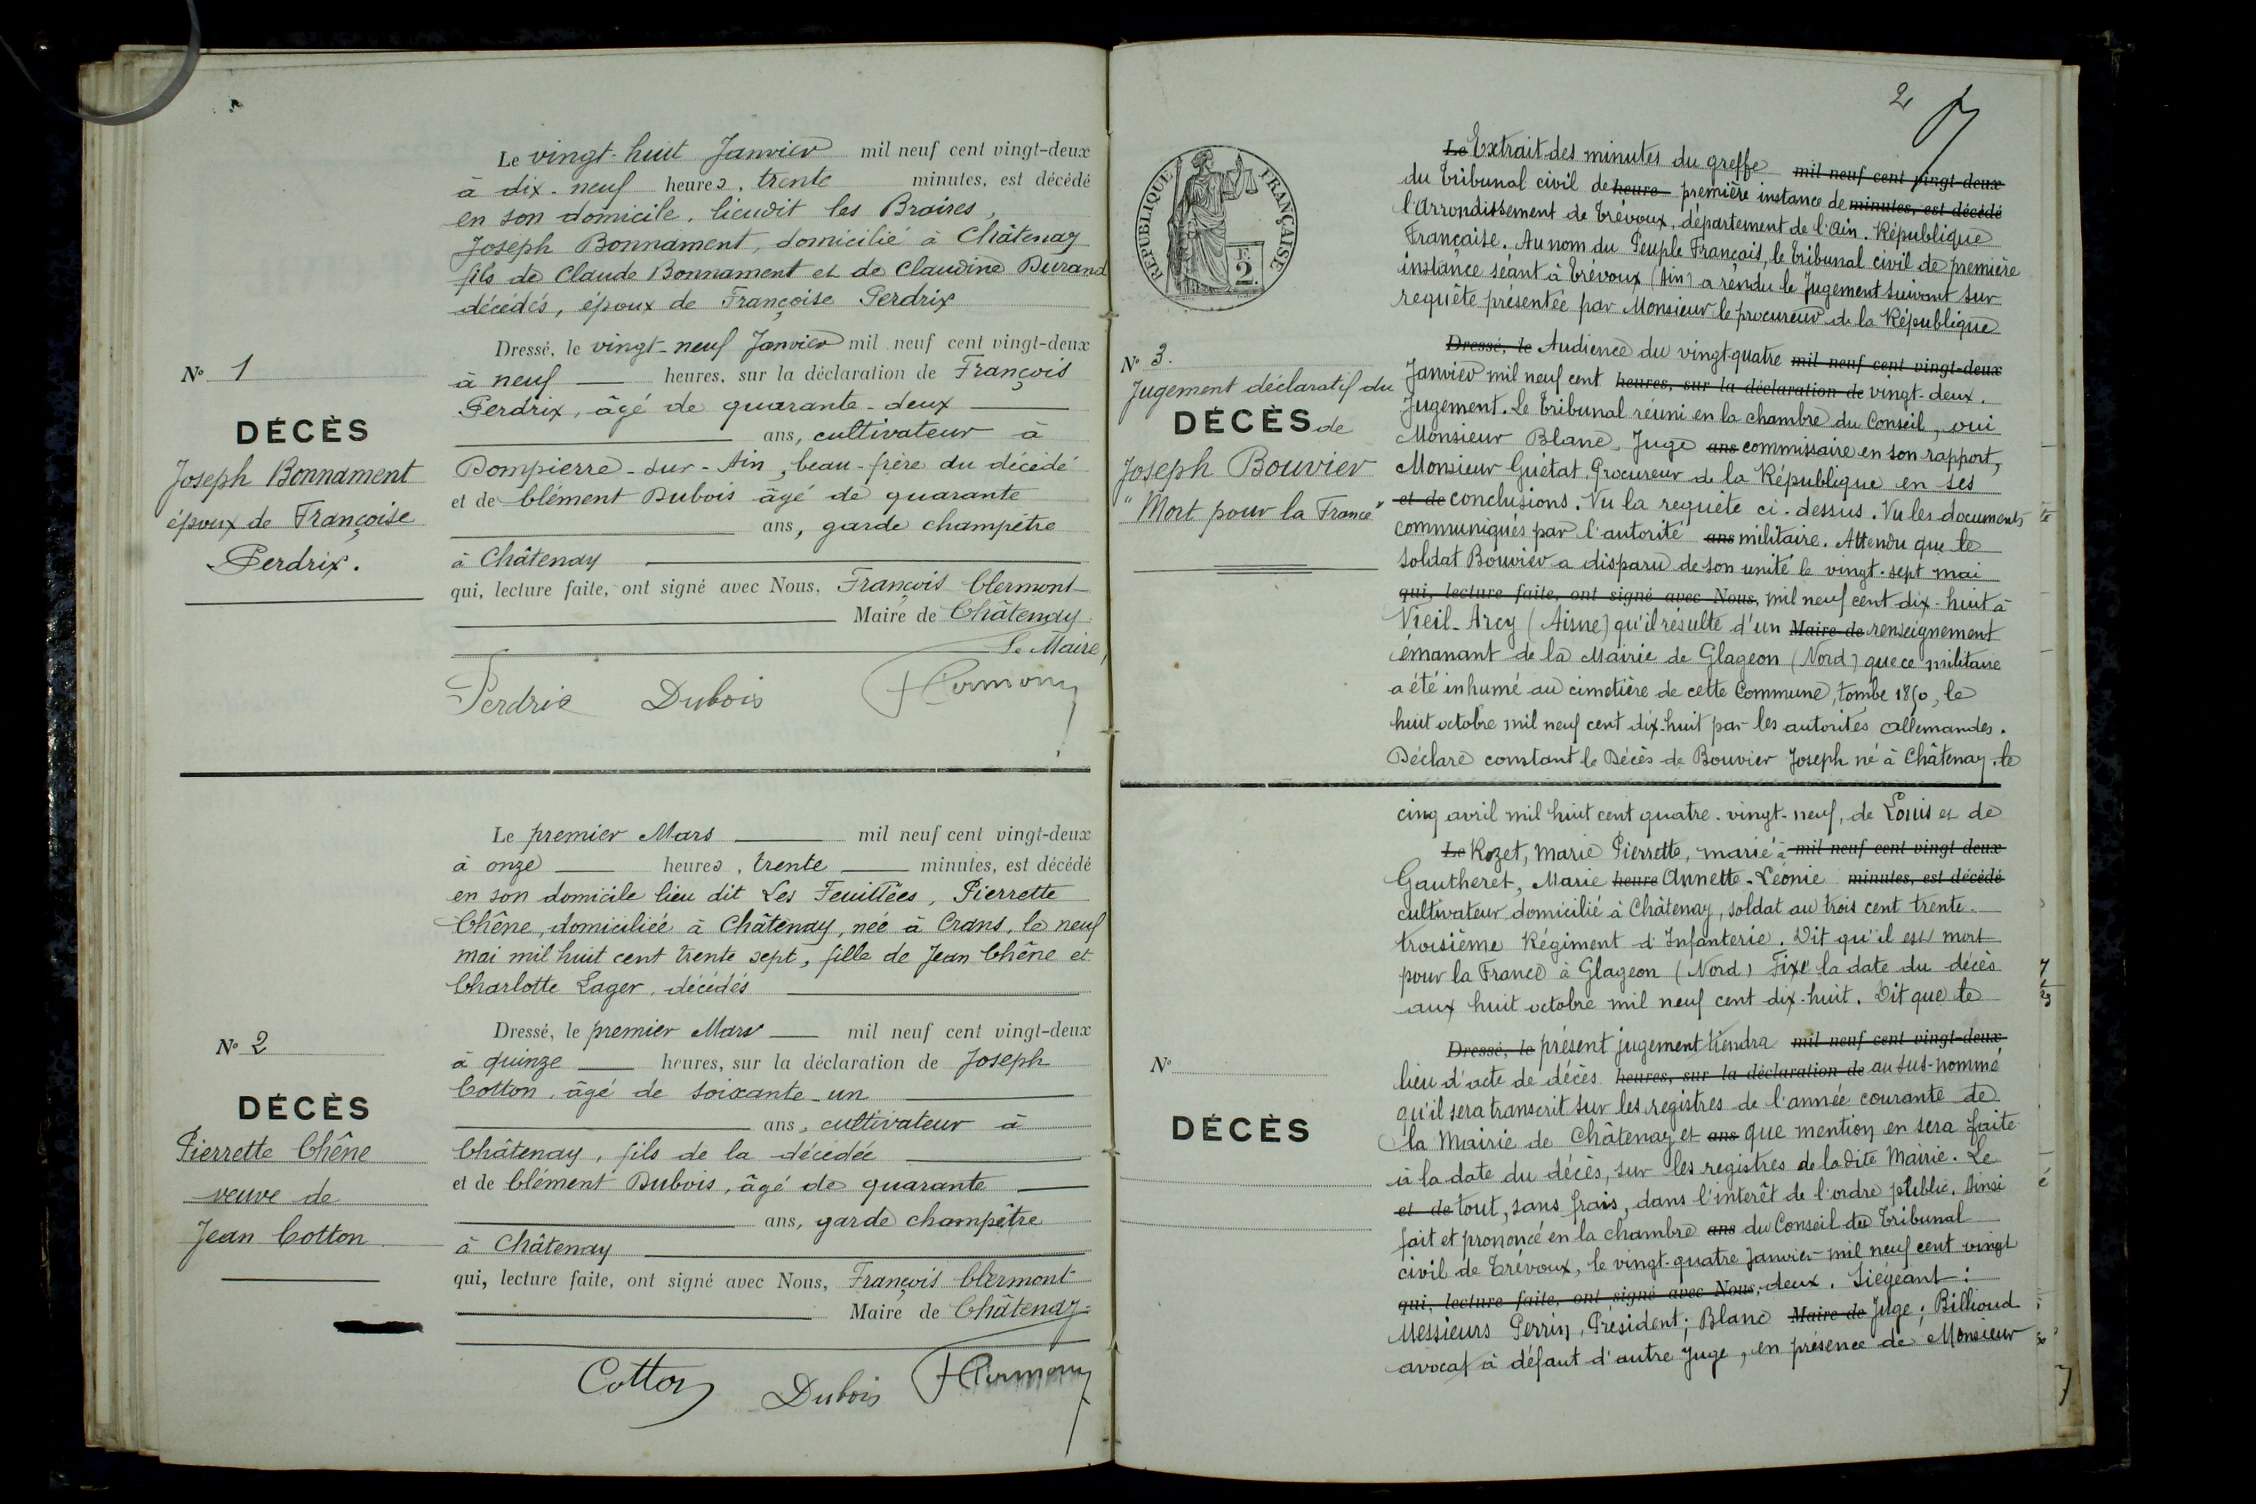 Le vingt-huit Janvier mil neuf cent vingt-deux
à dix-neuf heures, trente minutes, est décédé
en son domicile, lieudit les Braires,
Joseph Bonnament, domicilié à Châtenay
fils de Claude Bonnament et de Claudine Durand
décédés, époux de Françoise Perdrix
Dressé, le vingt-neuf Janvier mil neuf cent vingt-deux
à neuf heures, sur la déclaration de François
Perdrix, âgé de quarante-deux
ans, cultivateur à
Dompierre-sur-Ain, beau-frère du décédé
et de Clément Dubois âgé de quarante
ans, garde champêtre
à Châtenay
qui, lecture faite, ont signé avec Nous, François Clermont
Maire de Châtenay
Le Maire,
Perdrix Dubois FClermont
N° 1
DÉCÈS
Joseph Bonnament
époux de Françoise
Perdrix.
Le premier Mars mil neuf cent vingt-deux
à onze heures, trente minutes, est décédé
en son domicile lieu dit Les Feuillées, Pierrette
Chêne, domiciliée à Châtenay, née à Crans, le neuf
mai mil huit cent trente sept, fille de Jean Chêne et
Charlotte Lager, décédés
Dressé, le premier Mars mil neuf cent vingt-deux
à quinze heures, sur la déclaration de Joseph
Cotton, âgé de soixante-un
ans, cultivateur à
Châtenay, fils de la décédée
et de Clément Dubois, âgé de quarante
ans, garde champêtre
à Châtenay
qui, lecture faite, ont signé avec Nous, François Clermont
Maire de Châtenay
Cotton Dubois FClermont
N° 2
DÉCÈS
Pierrette Chêne
veuve de
Jean Cotton
2
RÉPUBLIQUE FRANÇAISE
F.
2.
N° 3.
Jugement déclaratif du
DÉCÈS de
Joseph Bouvier
"Mort pour la France"
Le Extrait des minutes du greffe mil neuf cent vingt-deux
du Tribunal civil de heure première instance de minutes, est décédé
l'Arrondissement de Trévoux, département de l'Ain. République
Française. Au nom du Peuple Français, le Tribunal civil de première
instance séant à Trévoux (Ain) a rendu le Jugement suivant sur
requête présentée par Monsieur le procureur de la République
Dressé, le Audience du vingt-quatre mil neuf cent vingt-deux
Janvier mil neuf cent heures, sur la déclaration de vingt-deux.
Jugement. Le Tribunal réuni en la chambre du Conseil, oui
Monsieur Blanc, Juge ans commissaire en son rapport,
Monsieur Guétat, Procureur de la République en ses
et de conclusions. Vu la requête ci-dessus. Vu les documents
communiqués par l'autorité ans militaire. Attendu que le
soldat Bouvier a disparu de son unité le vingt-sept mai
qui, lecture faite, ont signé avec Nous, mil neuf cent dix-huit à
Vieil-Arcy (Aisne) qu'il résulte d'un Maire de renseignement
émanant de la Mairie de Glageon (Nord) que ce militaire
a été inhumé au cimetière de cette Commune, tombe 1850, le
huit octobre mil neuf cent dix-huit par les autorités allemandes.
Déclare constant le Décès de Bouvier Joseph né à Châtenay, le
cinq avril mil huit cent quatre-vingt-neuf, de Louis et de
Le Rozet, Marie Pierrette, marié à mil neuf cent vingt-deux
Gautheret, Marie heure Annette-Léonie minutes, est décédé
cultivateur domicilié à Châtenay, soldat au trois cent trente-
troisième Régiment d'Infanterie. Dit qu'il est mort
pour la France à Glageon (Nord) Fixe la date du décès
aux huit octobre mil neuf cent dix-huit. Dit que le
Dressé, le présent jugement tiendra mil neuf cent vingt-deux
lieu d'acte de décès heures, sur la déclaration de au sus-nommé
qu'il sera transcrit sur les registres de l'année courante de
la Mairie de Châtenay et ans que mention en sera faite
à la date du décès, sur les registres de ladite Mairie. Le
et de tout, sans frais, dans l'interêt de l'ordre public. Ainsi
fait et prononcé en la chambre ans du Conseil du Tribunal
civil de Trévoux, le vingt-quatre Janvier mil neuf cent vingt
qui, lecture faite, ont signé avec Nous, deux. Siégeant :
Messieurs Perrin, Président; Blanc Maire de Juge; Billioud
avocat à défaut d'autre Juge, en présence de Monsieur
N°
DÉCÈS